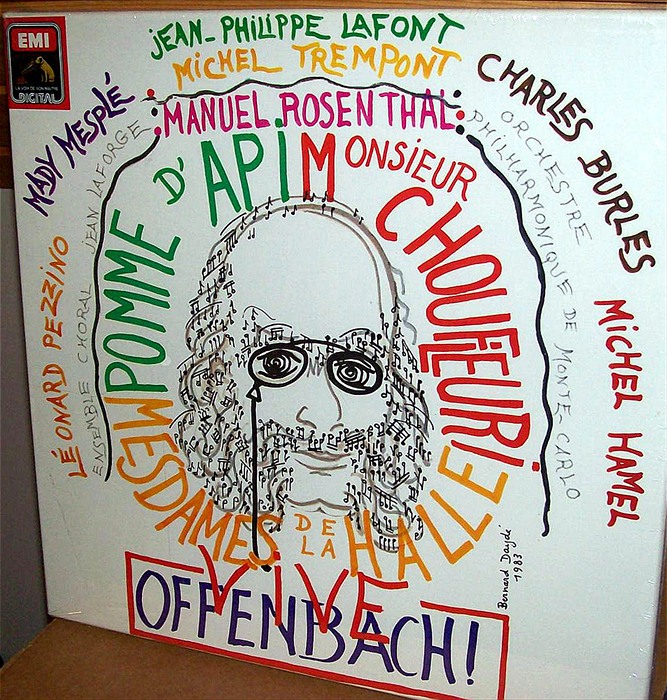 EMI
LA VOIX DE SON MAITRE
DIGITAL
JEAN-PHILIPPE LAFONT
MICHEL TREMPONT
MADY MESPLÉ
CHARLES BURLES
MANUEL ROSENTHAL
LÉONARD PEZZINO
ENSEMBLE CHORAL JEAN LAFORGE
ORCHESTRE
PHILHARMONIQUE DE MONTE-CARLO
MICHEL HAMEL
POMME D'API
MONSIEUR
CHOUFLEURI
MESDAMES
DE
LA
HALLE
Bernard Daydé
1983
VIVE
OFFENBACH!